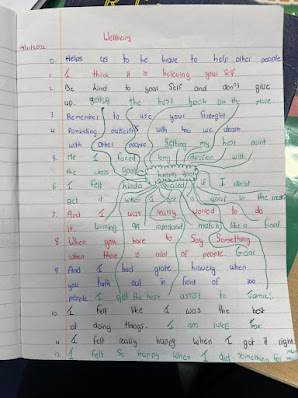 Wellbeing
0. Helps us to be brave to help other people
1. I think it is believing your self.
2. Be kind to your self and don't give
up. getting the best book on the
3. Remember to use your
4. Reminding ourselfs with how we
with other people getting my best point
5. He I faced big decision with
the class goal happy
6. I felt kinda scared if I didnt
get it when I got a goal in the match
7. And I was really worried to do
it. an important match like a final.
8. When you have to Say Something
when there is alot of people. Goal
9. And I had grate bravery when
you talk out in front of 100
people I get the best assist to Jamie.
10. I felt like I was the best
at doing things. I am Fox
11. I felt really happy when I got it right.
12. I felt so happy when I did something for my